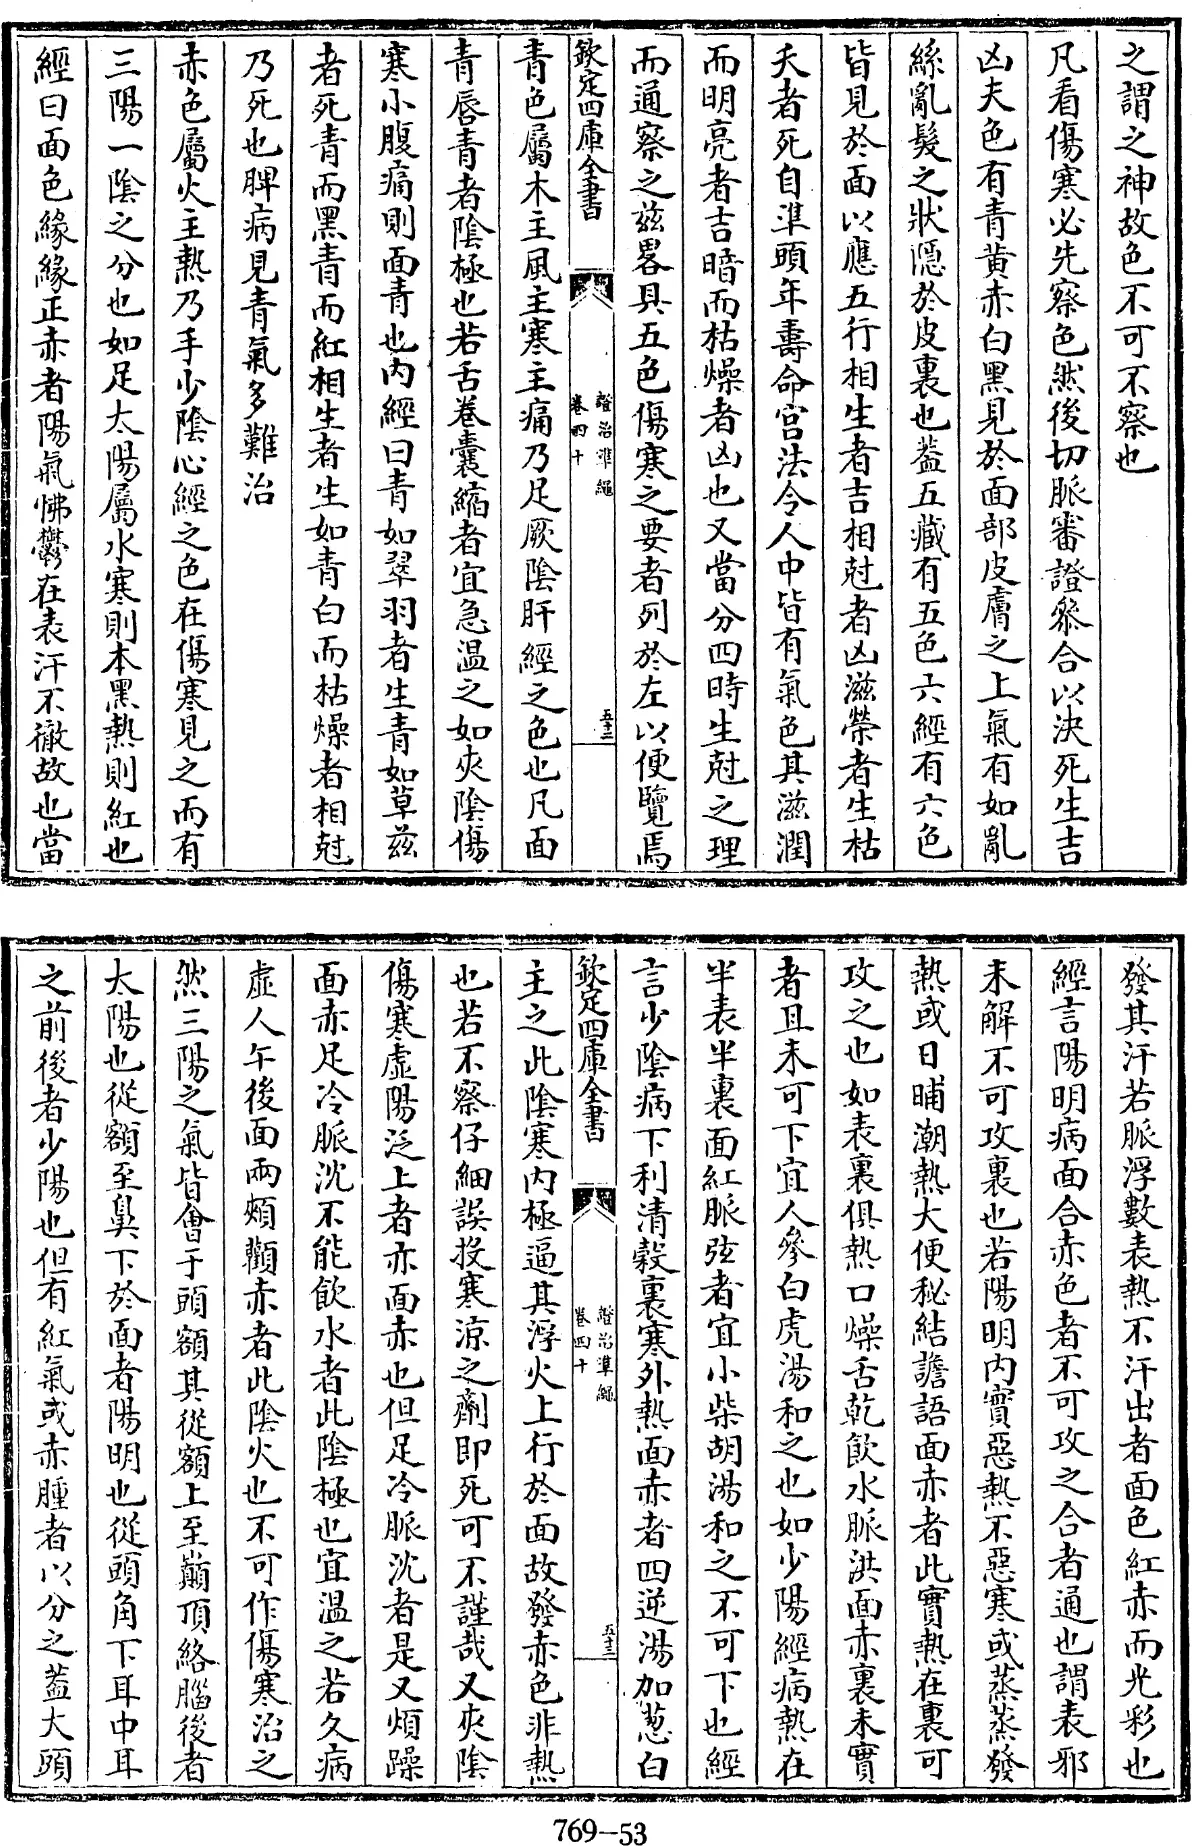 之謂之神故色不可不察也
凡看傷寒必先察色然後切脈審證叅合以決死生吉
凶夫色有青黄赤白黑見於面部皮膚之上氣有如亂
絲亂髮之狀隱於皮裏也葢五藏有五色六經有六色
皆見於面以應五行相生者吉相尅者凶滋榮者生枯
夭者死自準頭年壽命宫法令人中皆有氣色其滋潤
而明亮者吉暗而枯燥者凶也又當分四時生尅之理
而通察之兹畧具五色傷寒之要者列於左以便覽焉
欽定四庫全書
證治準繩
卷四十
五十三
青色屬木主風主寒主痛乃足厥隂肝經之色也凡面
青唇青者隂極也若舌卷囊縮者宜急温之如夾隂傷
寒小腹痛則面青也内經曰青如翠羽者生青如草兹
者死青而黑青而紅相生者生如青白而枯燥者相尅
乃死也脾病見青氣多難治
赤色屬火主熱乃手少隂心經之色在傷寒見之而有
三陽一隂之分也如足太陽屬水寒則本黑熱則紅也
經曰面色緣緣正赤者陽氣怫鬱在表汗不徹故也當
發其汗若脈浮數表熱不汗出者面色紅赤而光彩也
經言陽明病面合赤色者不可攻之合者通也謂表邪
未解不可攻裏也若陽明内實惡熱不惡寒或蒸蒸發
熱或日晡潮熱大便秘結譫語面赤者此實熱在裏可
攻之也如表裏俱熱口燥舌乾飲水脈洪面赤裏未實
者且未可下宜人參白虎湯和之也如少陽經病熱在
半表半裏面紅脈弦者宜小柴胡湯和之不可下也經
言少隂病下利清穀裏寒外熱面赤者四逆湯加葱白
欽定四庫全書
證治準繩
卷四十
五十三
主之此隂寒内極逼其浮火上行於面故發赤色非熱
也若不察仔細誤投寒凉之劑即死可不謹哉又夾隂
傷寒虛陽泛上者亦面赤也但足冷脈沈者是又煩躁
面赤足冷脈沈不能飲水者此隂極也宜温之若久病
虛人午後面兩頰顴赤者此隂火也不可作傷寒治之
然三陽之氣皆會于頭額其從額上至巔頂絡腦後者
太陽也從額至鼻下於面者陽明也從頭角下耳中耳
之前後者少陽也但有紅氣或赤腫者以分之葢大頭
769—53